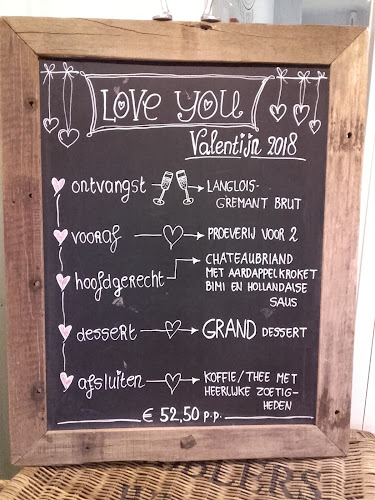 LOVE YOU
Valentijn 2018
ontvangst → LANGLOIS-
GREMANT BRUT
vooraf → PROEVERIJ VOOR 2
hoofdgerecht → CHATEAUBRIAND
MET AARDAPPELKROKET
BIMI EN HOLLANDAISE
SAUS
dessert → GRAND DESSERT
afsluiten → KOFFIE/THEE MET
HEERLIJKE ZOETIG-
HEDEN
€ 52,50 p.p.